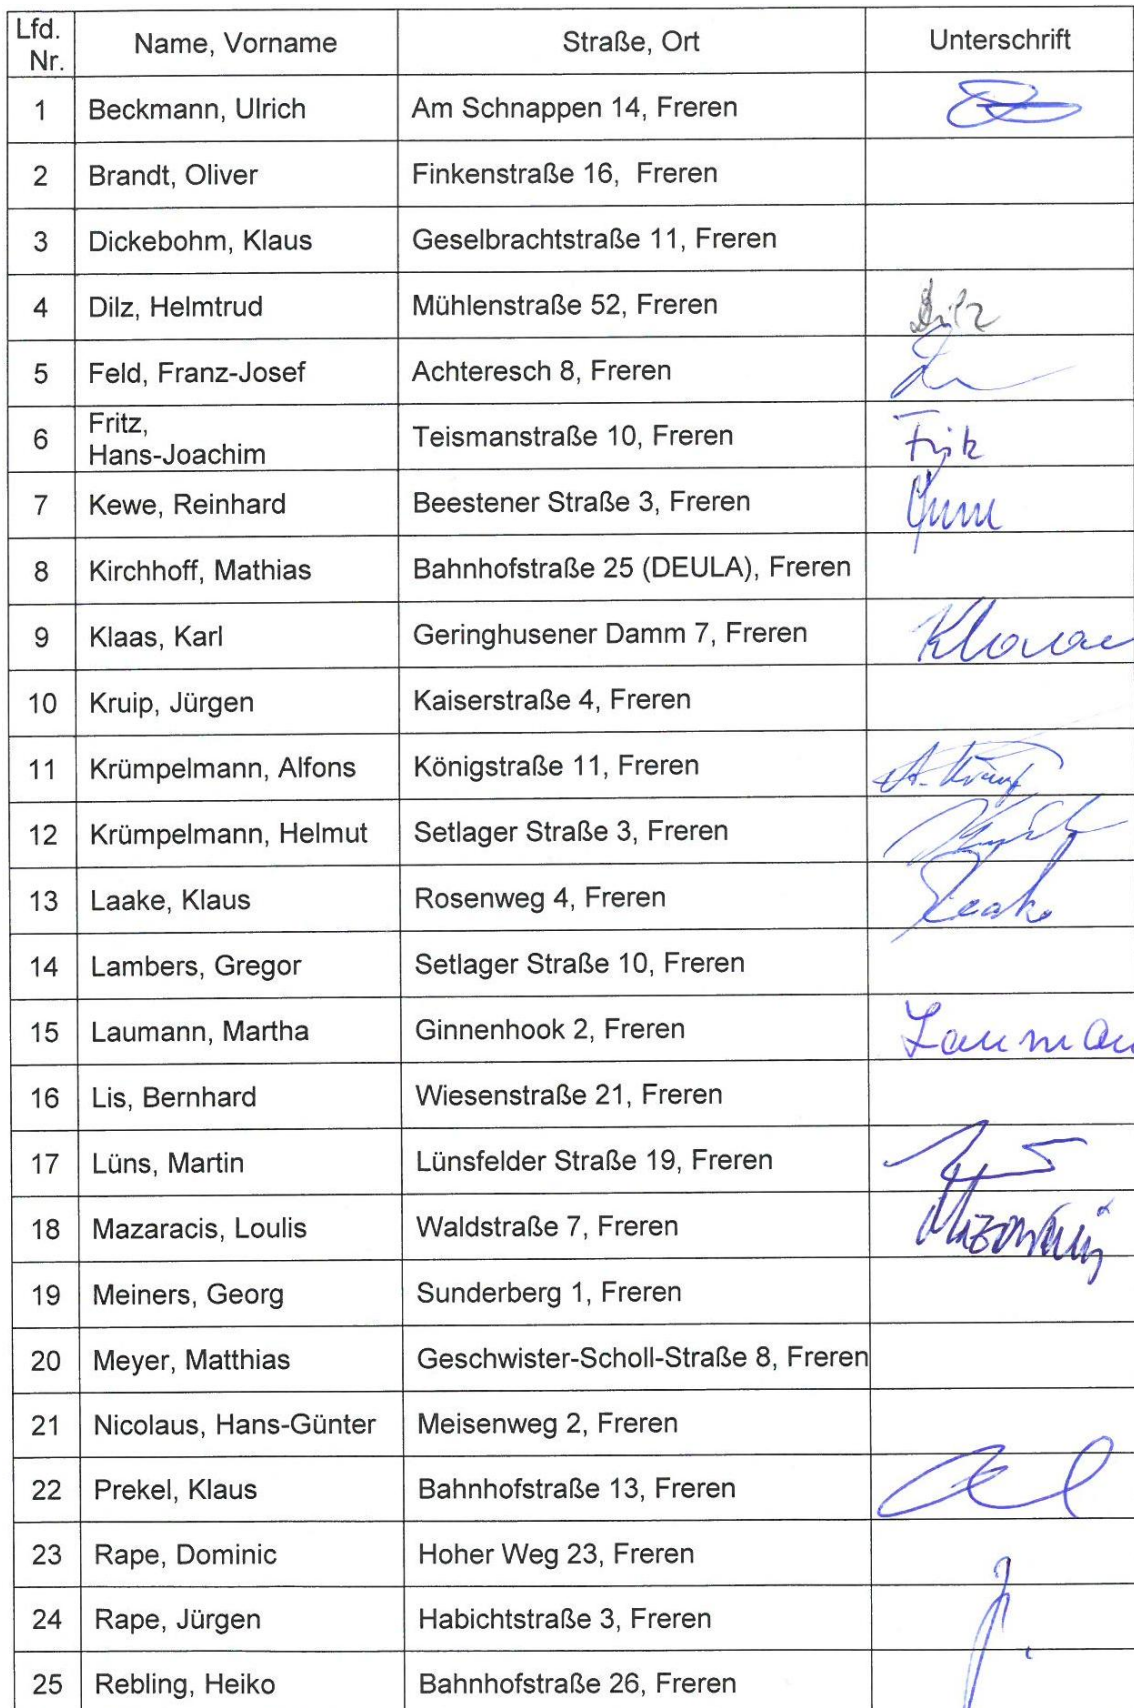 Lfd. Nr. Name, Vorname Straße, Ort Unterschrift
1 Beckmann, Ulrich Am Schnappen 14, Freren
2 Brandt, Oliver Finkenstraße 16, Freren
3 Dickebohm, Klaus Geselbrachtstraße 11, Freren
4 Dilz, Helmtrud Mühlenstraße 52, Freren Dilz
5 Feld, Franz-Josef Achteresch 8, Freren
6 Fritz, Hans-Joachim Teismanstraße 10, Freren Fritz
7 Kewe, Reinhard Beestener Straße 3, Freren
8 Kirchhoff, Mathias Bahnhofstraße 25 (DEULA), Freren
9 Klaas, Karl Geringhusener Damm 7, Freren
10 Kruip, Jürgen Kaiserstraße 4, Freren
11 Krümpelmann, Alfons Königstraße 11, Freren
12 Krümpelmann, Helmut Setlager Straße 3, Freren
13 Laake, Klaus Rosenweg 4, Freren Laake
14 Lambers, Gregor Setlager Straße 10, Freren
15 Laumann, Martha Ginnenhook 2, Freren Lauman
16 Lis, Bernhard Wiesenstraße 21, Freren
17 Lüns, Martin Lünsfelder Straße 19, Freren
18 Mazaracis, Loulis Waldstraße 7, Freren
19 Meiners, Georg Sunderberg 1, Freren
20 Meyer, Matthias Geschwister-Scholl-Straße 8, Freren
21 Nicolaus, Hans-Günter Meisenweg 2, Freren
22 Prekel, Klaus Bahnhofstraße 13, Freren
23 Rape, Dominic Hoher Weg 23, Freren
24 Rape, Jürgen Habichtstraße 3, Freren
25 Rebling, Heiko Bahnhofstraße 26, Freren